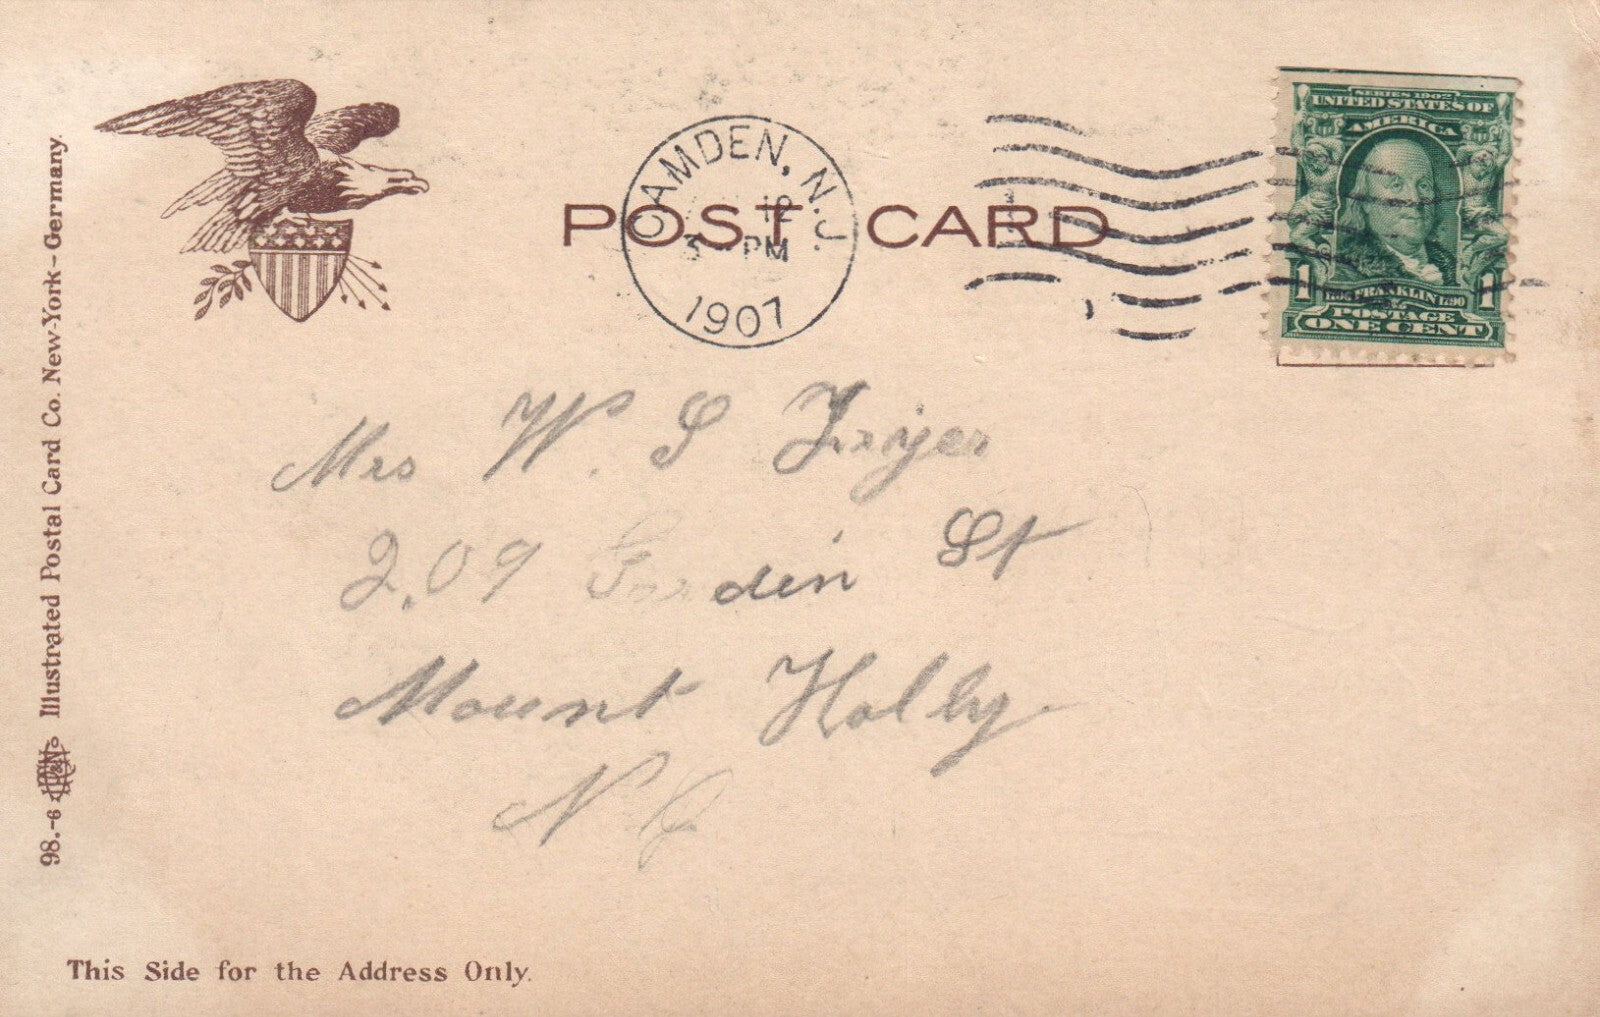 CAMDEN, N.J.
12
PM
1907
POST CARD
SERIES 1902
UNITED STATES OF
AMERICA
1 FRANKLIN 1790 1
POSTAGE
ONE CENT
Mrs W. S Fryer
209 Garden St
Mount Holly
N. J
98.-6 Illustrated Postal Card Co. New-York-Germany.
This Side for the Address Only.